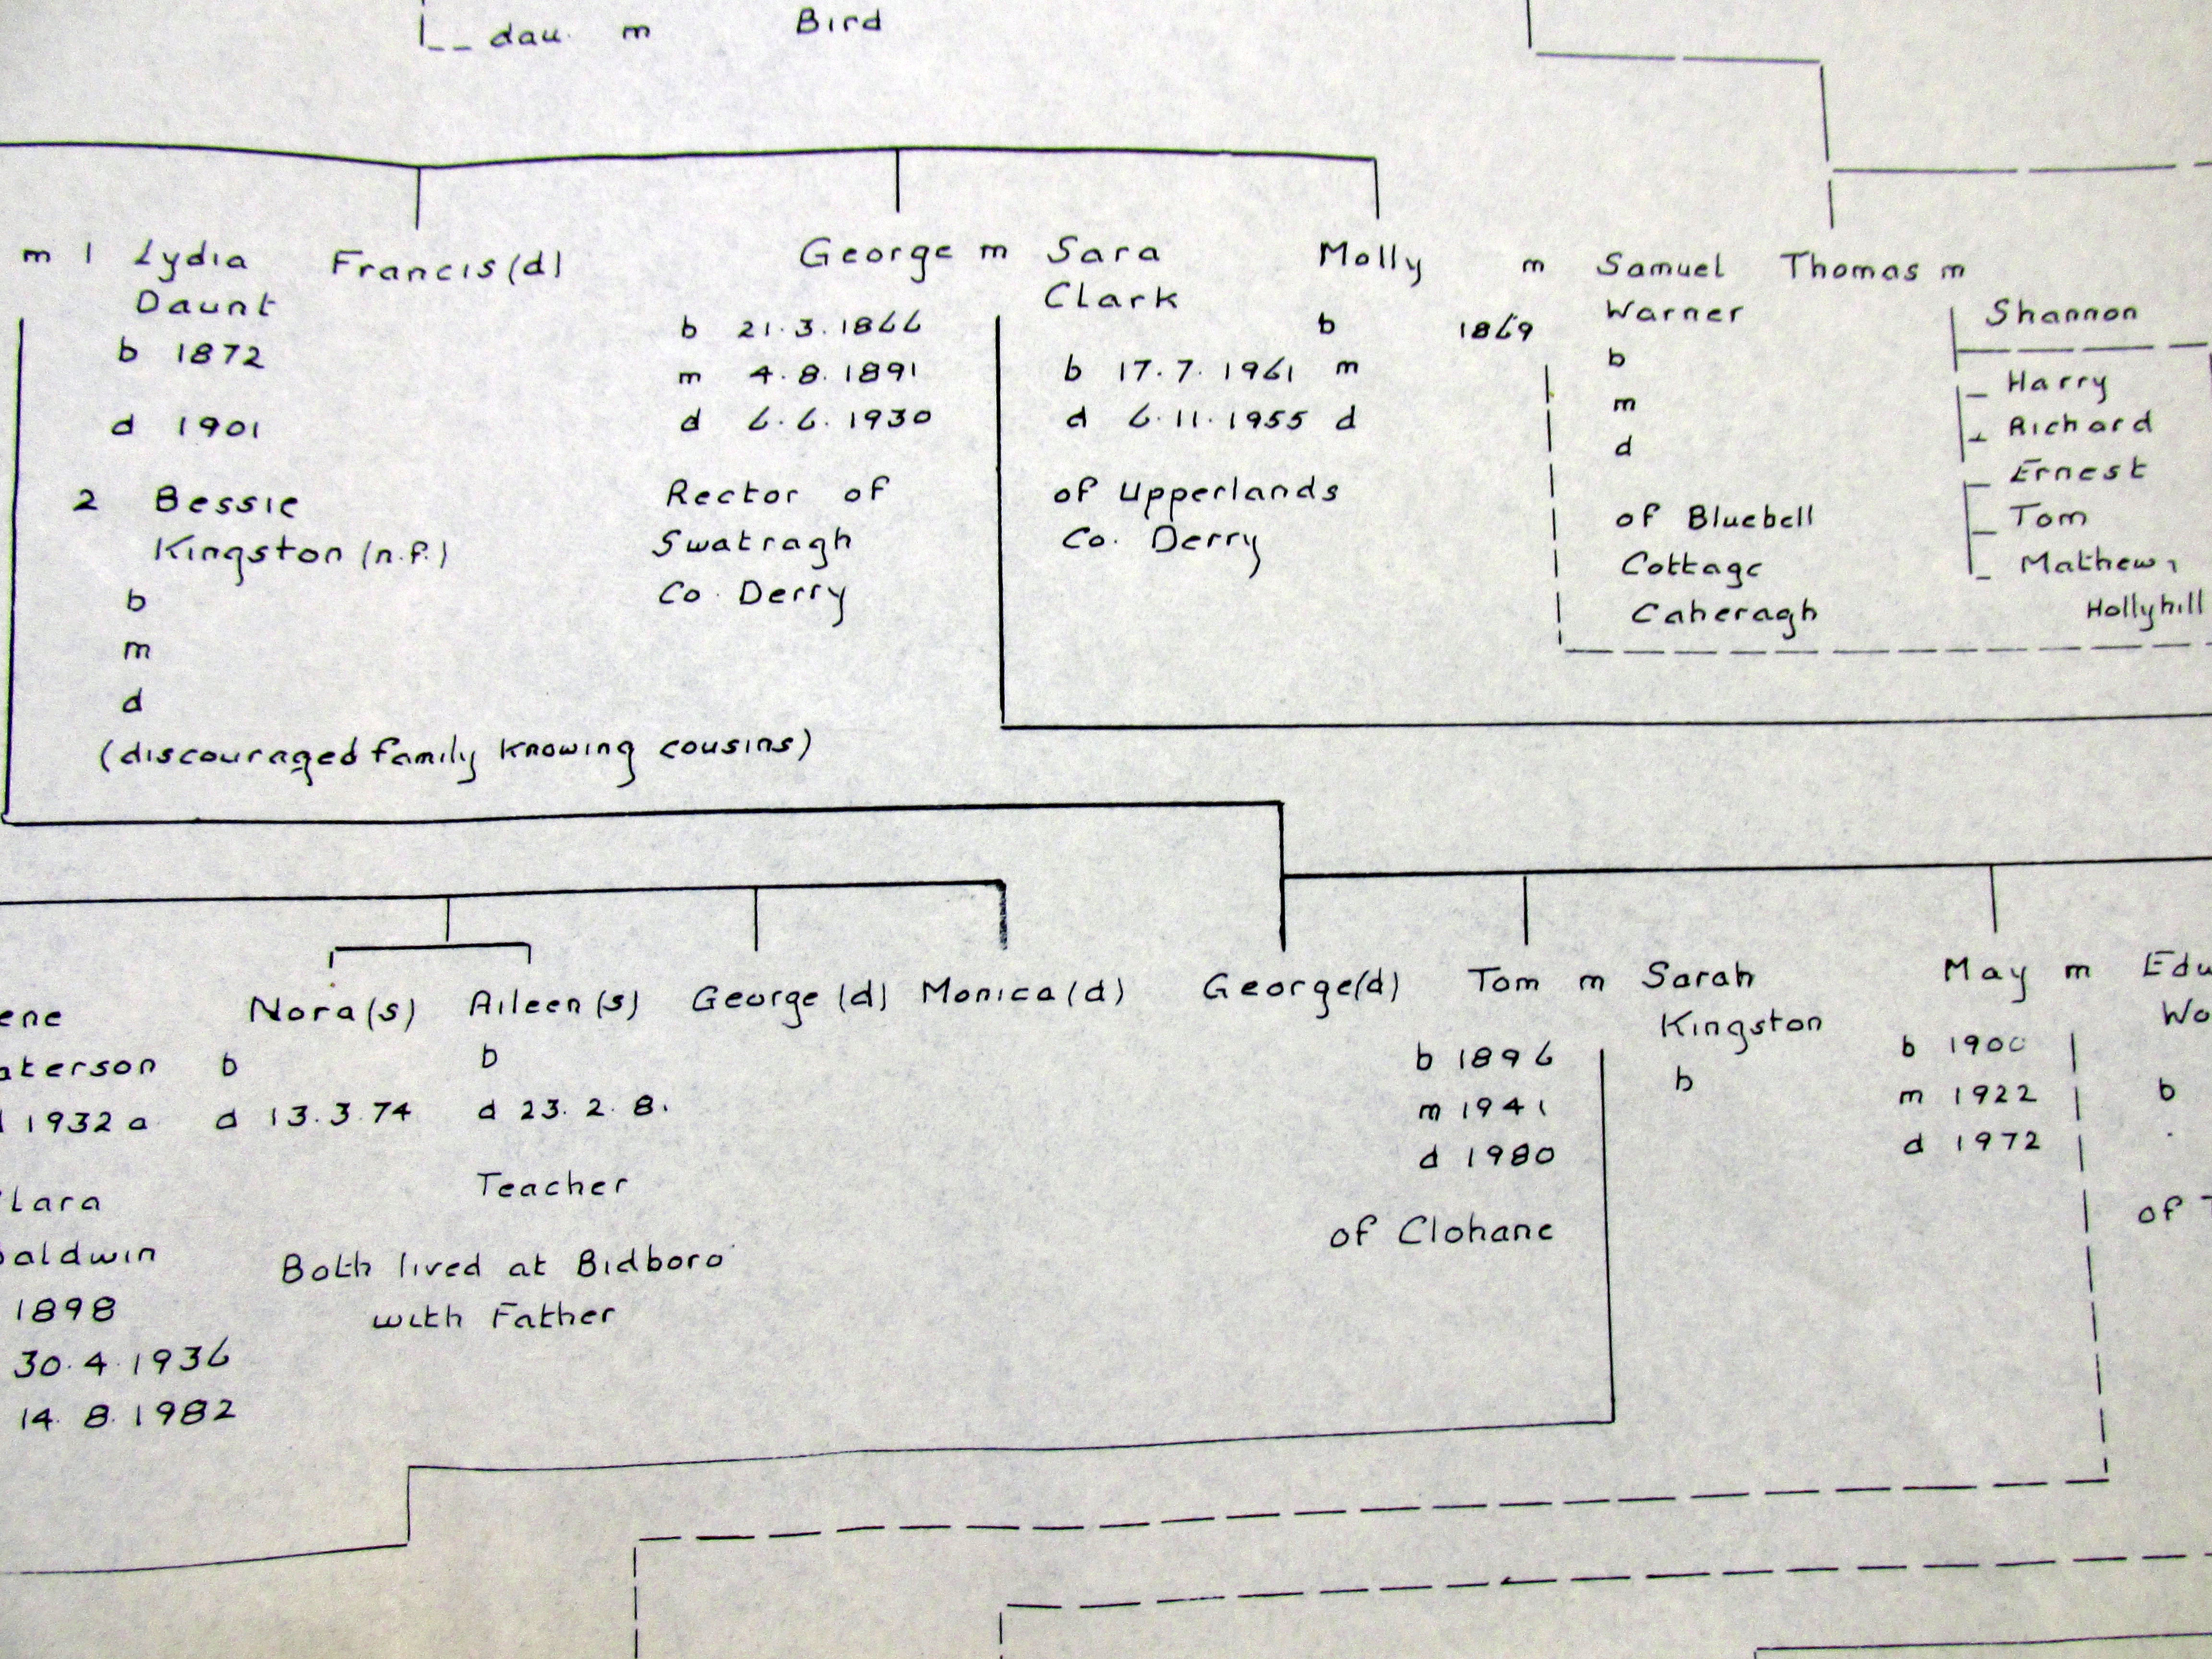 dau. m Bird
m 1 Lydia
Daunt
b 1872
d 1901
2 Bessie
Kingston (n.f.)
b
m
d
(discouraged family knowing cousins)
Francis (d)
George m Sara
Clark
b 21.3.1866
m 4.8.1891
d 6.6.1930
Rector of
Swatragh
Co. Derry
b 17.7.1961
d 6.11.1955
of Upperlands
Co. Derry
Molly m Samuel
Warner
b 1869
m
d
b
m
d
of Bluebell
Cottage
Caheragh
Thomas m
Shannon
Harry
Richard
Ernest
Tom
Mathew,
Hollyhill
ene
aterson
1932 a
lara
aldwin
1898
30.4.1936
14.8.1982
Nora (s)
b
d 13.3.74
Aileen (s)
b
d 23.2.8.
Teacher
Both lived at Bidboro
with Father
George (d)
Monica (d)
George (d)
Tom m Sarah
Kingston
b 1896
m 1941
d 1980
b
of Clohane
May m Edu
Wo
b 1900
m 1922
d 1972
b
of